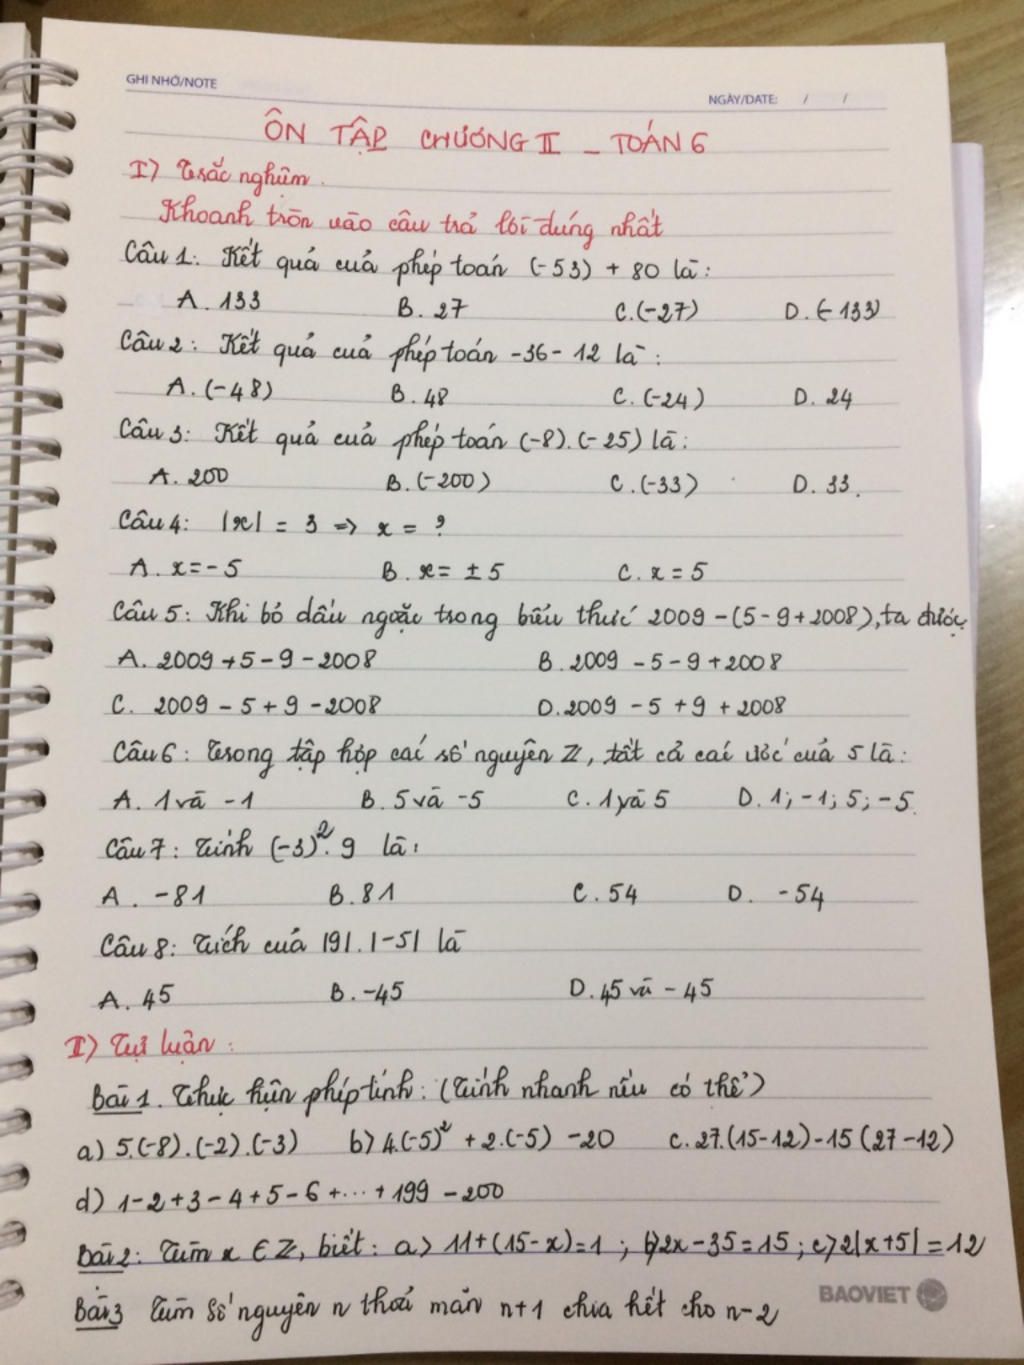 GHI NHỚ/NOTE
NGÀY/DATE: / /
ÔN TẬP CHƯƠNG II - TOÁN 6
I) Trắc nghiệm.
Khoanh tròn vào câu trả lời đúng nhất
Câu 1: Kết quả của phép toán (-53) + 80 là:
A. 133 B. 27 C. (-27) D. (-133)
Câu 2: Kết quả của phép toán -36 - 12 là:
A. (-48) B. 48 C. (-24) D. 24
Câu 3: Kết quả của phép toán (-8).(-25) là:
A. 200 B. (-200) C. (-33) D. 33.
Câu 4: |x| = 3 => x = ?
A. x = -5 B. x = ± 5 C. x = 5
Câu 5: Khi bỏ dấu ngoặc trong biểu thức 2009 - (5 - 9 + 2008), ta được
A. 2009 + 5 - 9 - 2008 B. 2009 - 5 - 9 + 2008
C. 2009 - 5 + 9 - 2008 D. 2009 - 5 + 9 + 2008
Câu 6: Trong tập hợp các số nguyên Z, tất cả các ước của 5 là:
A. 1 và -1 B. 5 và -5 C. 1 và 5 D. 1; -1; 5; -5.
Câu 7: Tính (-3)². 9 là:
A. -81 B. 81 C. 54 D. -54
Câu 8: Tích của |9|.|-5| là
A. 45 B. -45 D. 45 và -45
II) Tự luận:
Bài 1. Thực hiện phép tính: (Tính nhanh nếu có thể)
a) 5.(-8).(-2).(-3) b) 4.(-5)² + 2.(-5) - 20 c. 27.(15-12) - 15(27-12)
d) 1 - 2 + 3 - 4 + 5 - 6 + ... + 199 - 200
Bài 2: Tìm x ∈ Z, biết: a) 11 + (15 - x) = 1; b) 2x - 35 = 15; c) 2|x+5| = 12
Bài 3 Tìm số nguyên n thoả mãn n+1 chia hết cho n-2
BAOVIET